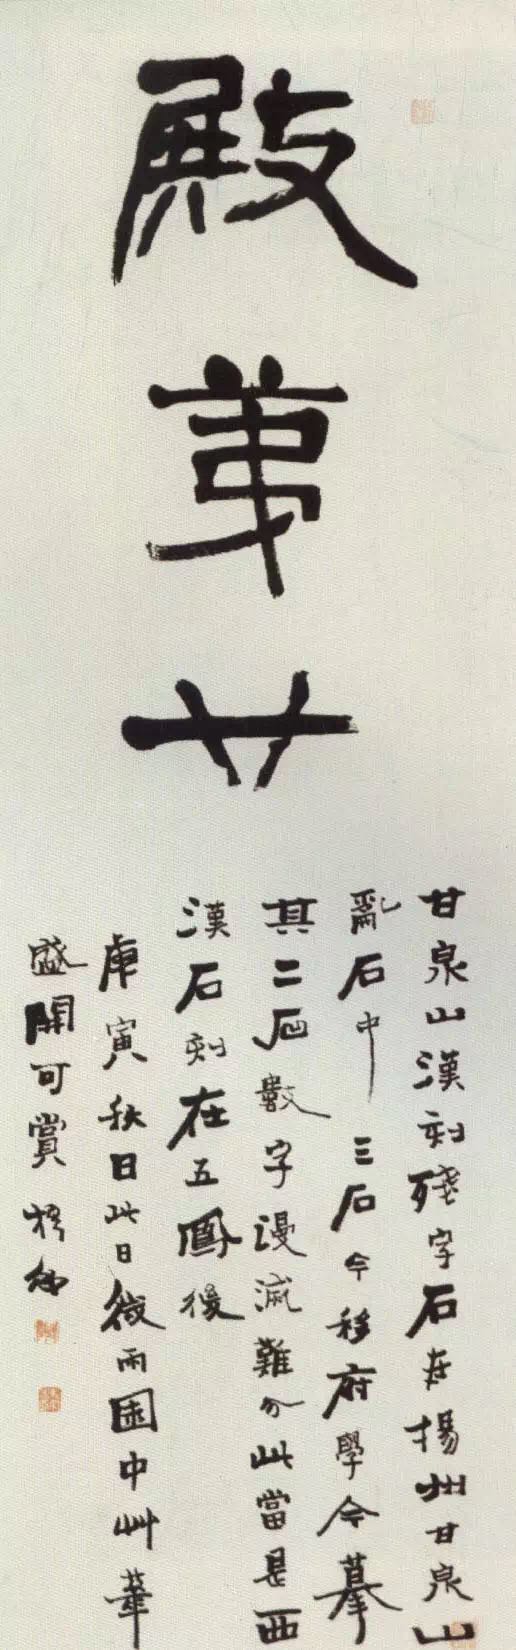 殿
苐
廿
甘泉山漢刻殘字石在揚州甘泉山
亂石中三石今移府學今摹
其二石數字漫流難分此當是西
漢石刻在五鳳後
庚寅秋日此日微雨園中艸華
盛開可賞